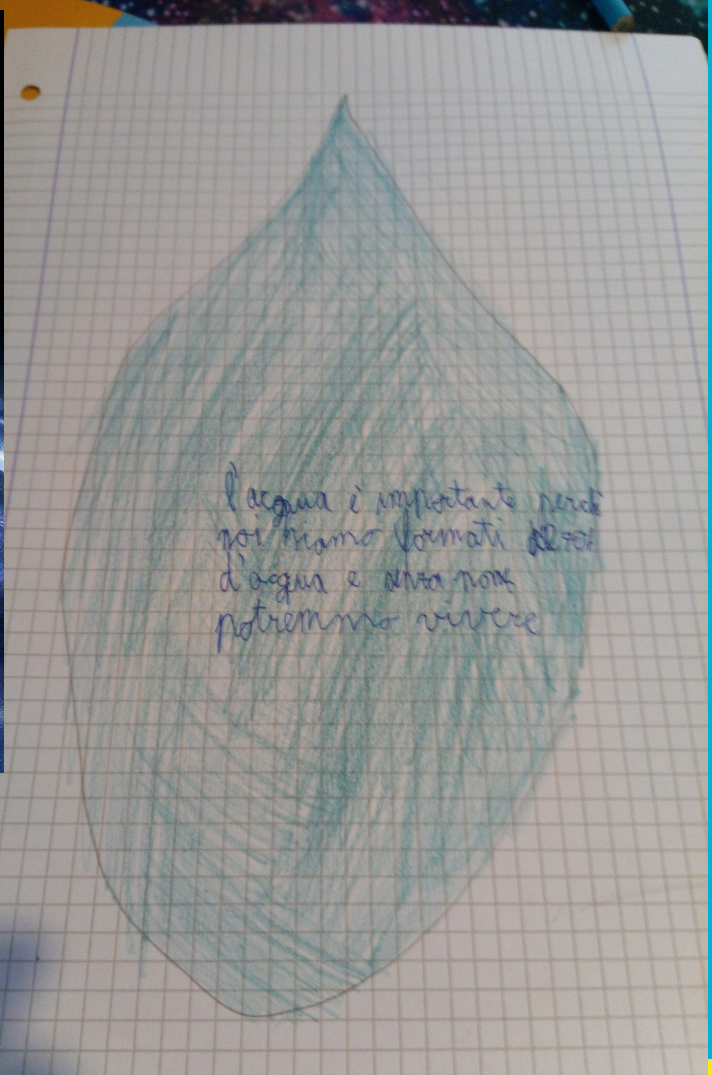 l'acqua è importante perchè
noi siamo formati al 70%
d'acqua e senza non
potremmo vivere